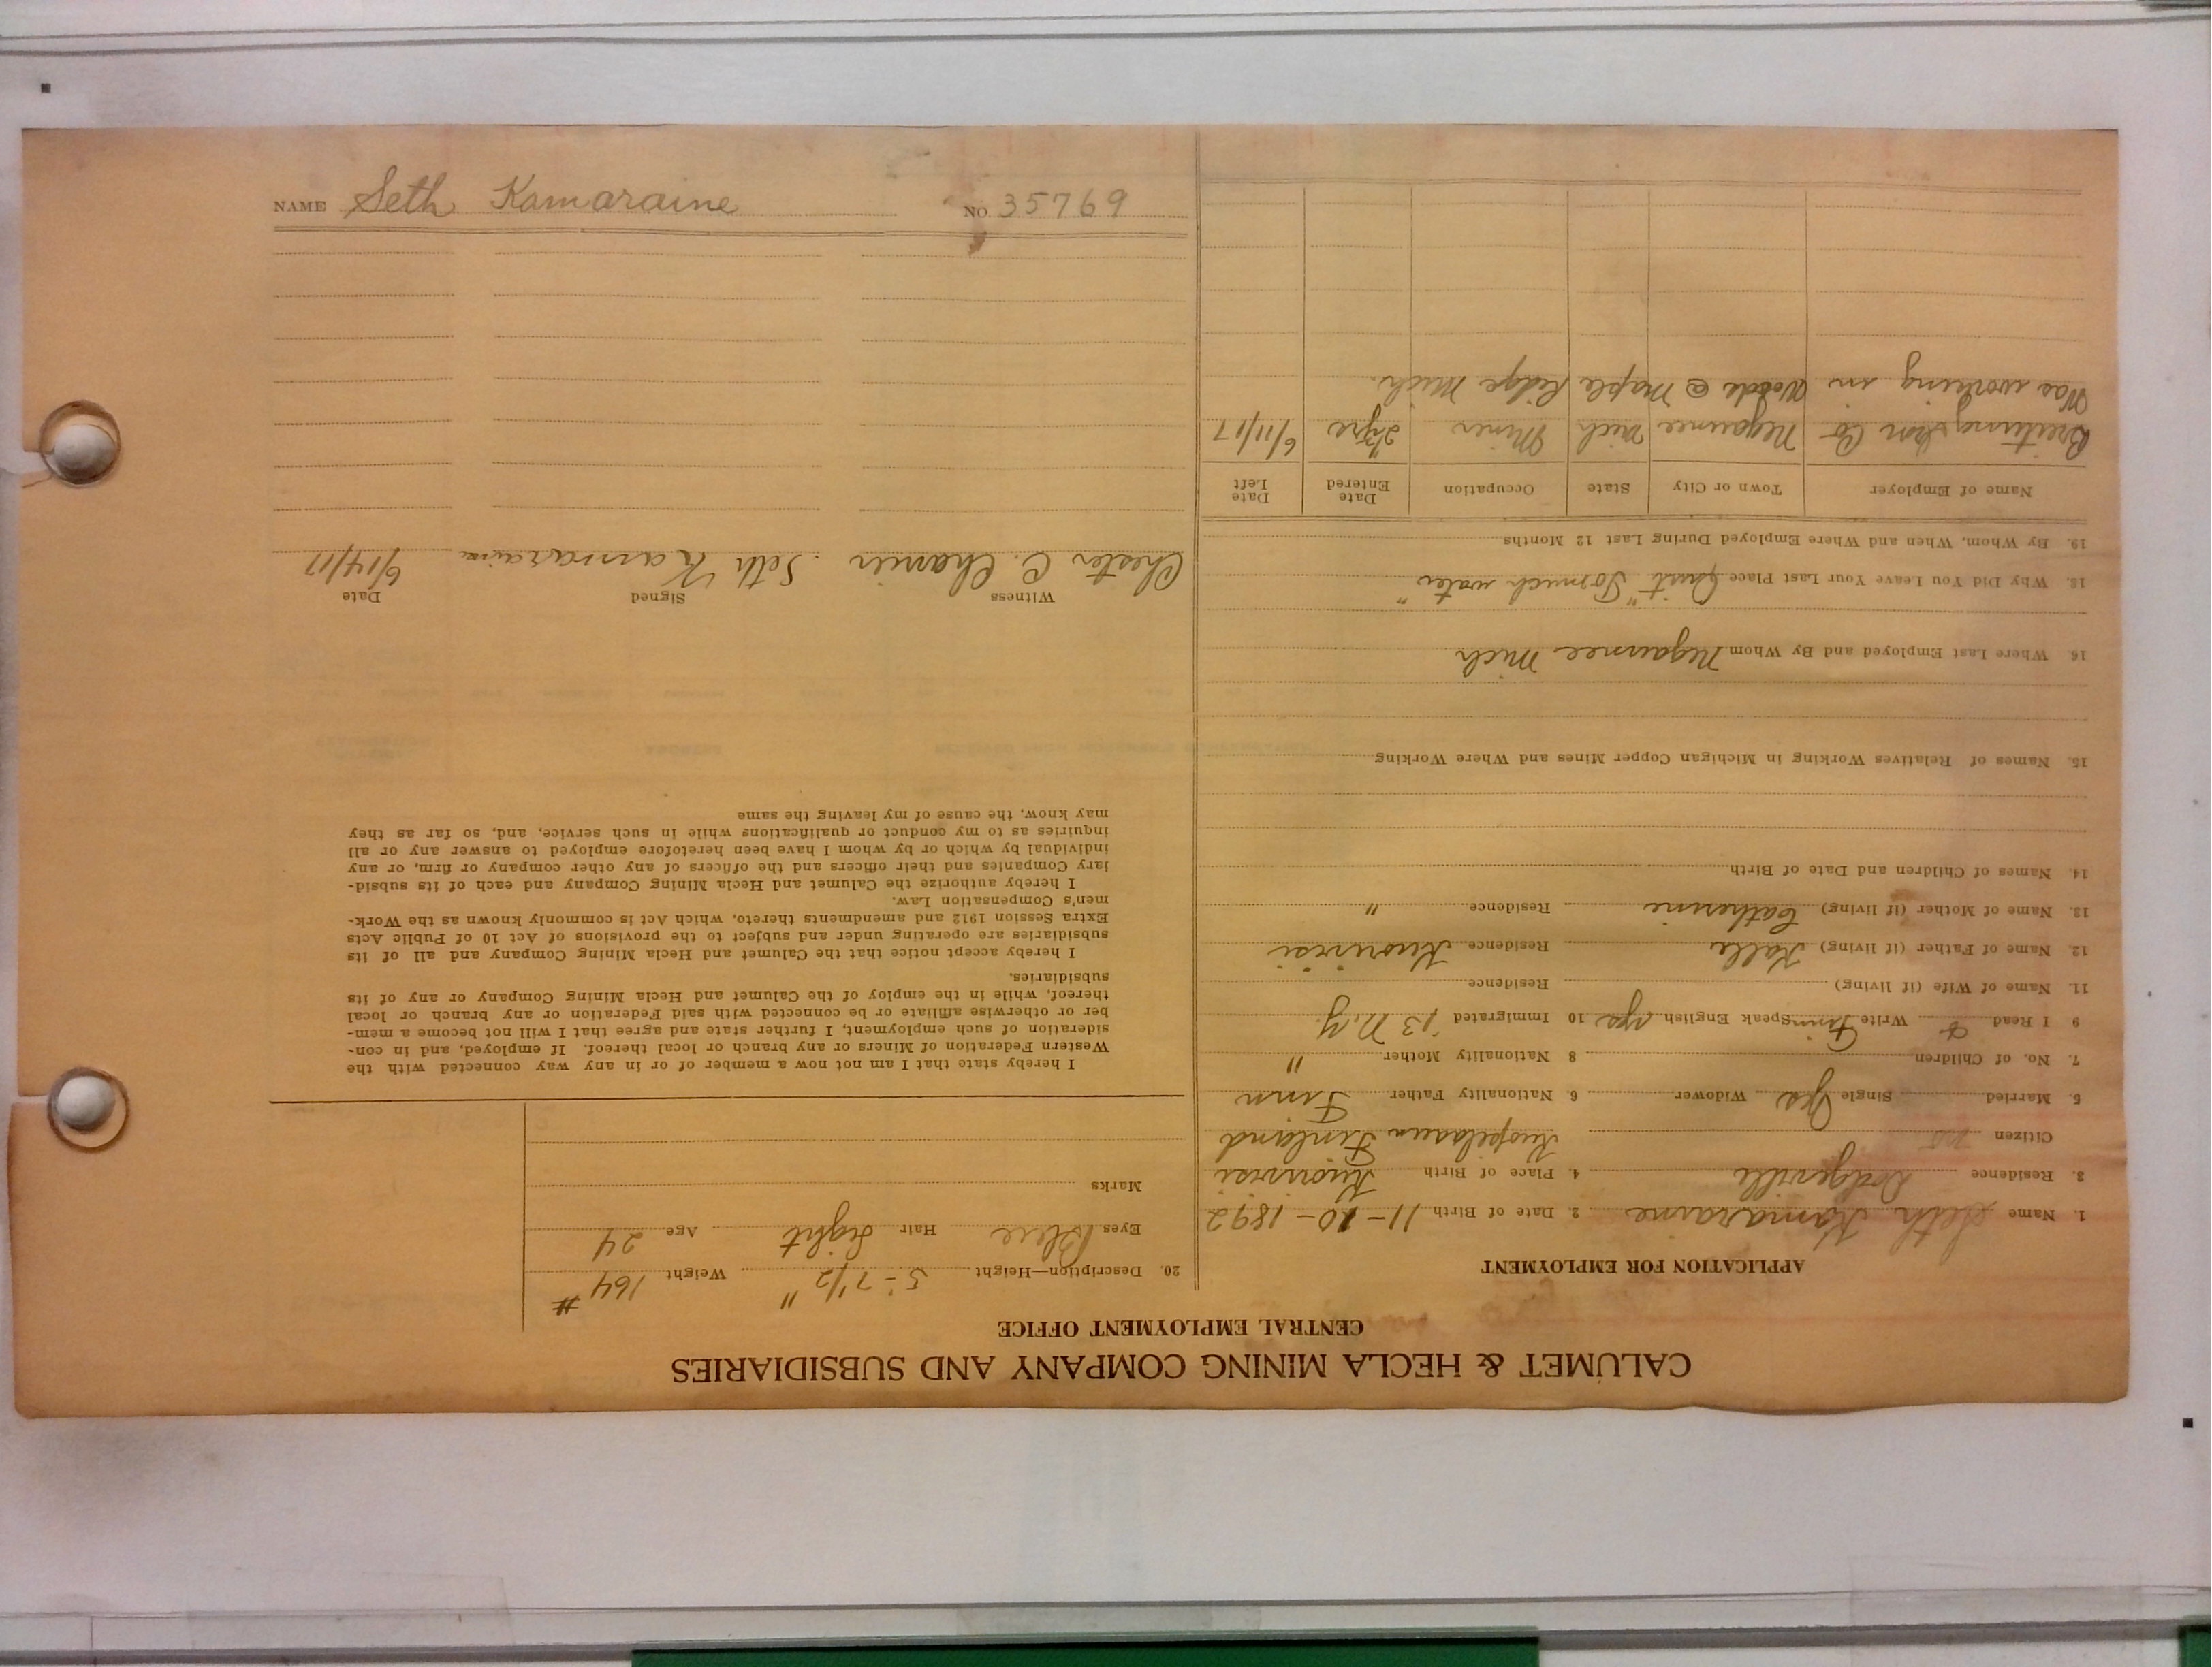 CALUMET & HECLA MINING COMPANY AND SUBSIDIARIES
CENTRAL EMPLOYMENT OFFICE
APPLICATION FOR EMPLOYMENT
1. Name Seth Kamaraine 2. Date of Birth 11-10-1892
3. Residence Dodgeville 4. Place of Birth Kuorvesi
Citizen no Finland
5. Married Single yes Widower 6. Nationality Father Finn
7. No. of Children 8 Nationality Mother "
9 I Read & Write Finn Speak English yes 10 Immigrated '13 N.Y.
11. Name of Wife (if living) Residence
12. Name of Father (if living) Kalle Residence Kuorvesi
13. Name of Mother (if living) Catherine Residence "
14. Names of Children and Date of Birth
15. Names of Relatives Working in Michigan Copper Mines and Where Working
16. Where Last Employed and By Whom Negaunee Mich
18. Why Did You Leave Your Last Place Quit "To much water"
19. By Whom, When and Where Employed During Last 12 Months
Name of Employer Town or City State Occupation Date Entered Date Left
Breitung Iron Co Negaunee Mich Miner 2 yrs 6/11/17
Was working in Woods @ Maple Ridge Mich.
20. Description—Height 5'-7 1/2" Weight 164 #
Eyes Blue Hair Light Age 24
Marks
I hereby state that I am not now a member of or in any way connected with the
Western Federation of Miners or any branch or local thereof. If employed, and in con-
sideration of such employment, I further state and agree that I will not become a mem-
ber or otherwise affiliate or be connected with said Federation or any branch or local
thereof, while in the employ of the Calumet and Hecla Mining Company or any of its
subsidiaries.
I hereby accept notice that the Calumet and Hecla Mining Company and all of its
subsidiaries are operating under and subject to the provisions of Act 10 of Public Acts
Extra Session 1912 and amendments thereto, which Act is commonly known as the Work-
men's Compensation Law.
I hereby authorize the Calumet and Hecla Mining Company and each of its subsid-
iary Companies and their officers and the officers of any other company or firm, or any
individual by which or by whom I have been heretofore employed to answer any or all
inquiries as to my conduct or qualifications while in such service, and, so far as they
may know, the cause of my leaving the same
Witness Signed Date
Chester C. Seth Kamaraine 6/14/17
NAME Seth Kamaraine NO. 35769